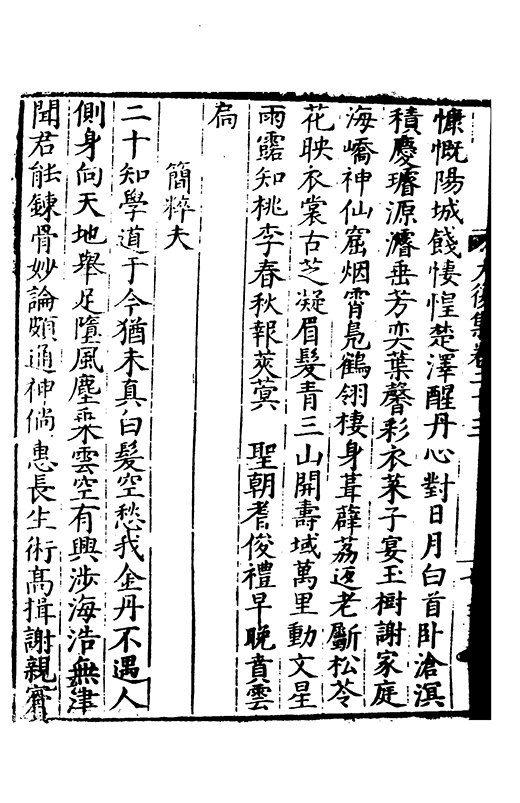 慷慨陽城餞悽惶楚澤醒丹心對日月白首卧滄溟
積慶璿源濬垂芳奕葉馨彩衣萊子宴玉樹謝家庭
海嶠神仙窟烟霄鳧鶴翎棲身葺薜荔延老斸松苓
花映衣裳古芝凝眉髮青三山開壽域萬里動文星
雨露知桃李春秋報蓂莢 聖朝耆俊禮早晚賁雲
扃
簡粹夫
二十知學道于今猶未真白髮空愁我金丹不遇人
側身向天地舉足墮風塵乗雲空有興涉海浩無津
聞君能鍊骨妙論頗通神倘惠長生術高揖謝親賓